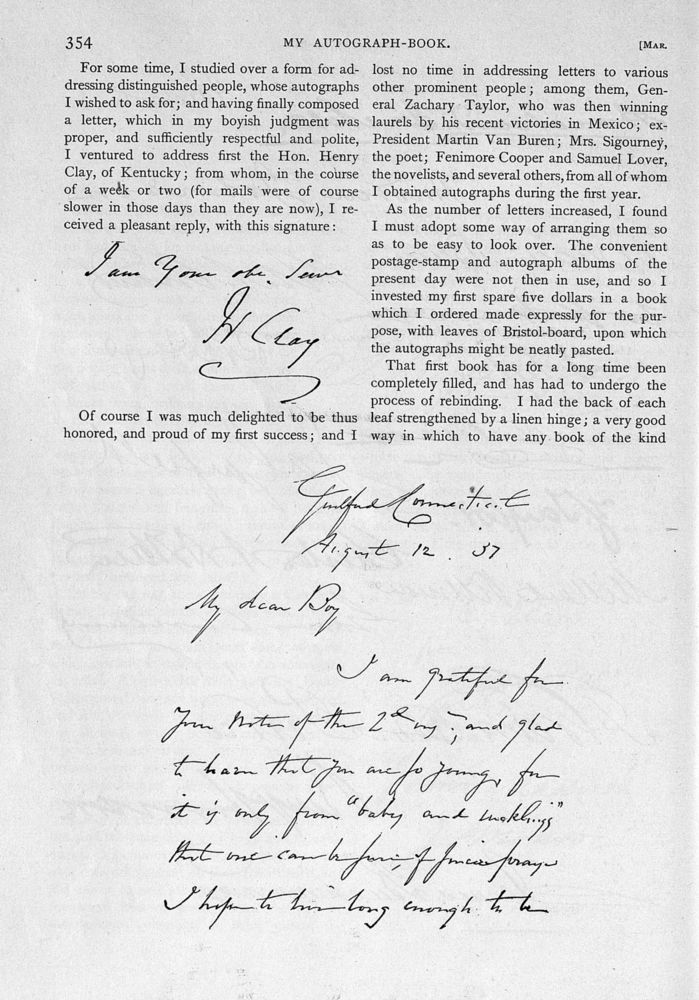 354
MY AUTOGRAPH-BOOK.
[MAR.
For some time, I studied over a form for ad-
dressing distinguished people, whose autographs
I wished to ask for; and having finally composed
a letter, which in my boyish judgment was
proper, and sufficiently respectful and polite,
I ventured to address first the Hon. Henry
Clay, of Kentucky; from whom, in the course
of a week or two (for mails were of course
slower in those days than they are now), I re-
ceived a pleasant reply, with this signature:
I am Your obt. Servt
H Clay
Of course I was much delighted to be thus
honored, and proud of my first success; and I
lost no time in addressing letters to various
other prominent people; among them, Gen-
eral Zachary Taylor, who was then winning
laurels by his recent victories in Mexico; ex-
President Martin Van Buren; Mrs. Sigourney,
the poet; Fenimore Cooper and Samuel Lover,
the novelists, and several others, from all of whom
I obtained autographs during the first year.
As the number of letters increased, I found
I must adopt some way of arranging them so
as to be easy to look over. The convenient
postage-stamp and autograph albums of the
present day were not then in use, and so I
invested my first spare five dollars in a book
which I ordered made expressly for the pur-
pose, with leaves of Bristol-board, upon which
the autographs might be neatly pasted.
That first book has for a long time been
completely filled, and has had to undergo the
process of rebinding. I had the back of each
leaf strengthened by a linen hinge; a very good
way in which to have any book of the kind
Guilford Connecticut
August 12. 57
My dear Boy
I am grateful for
Your Note of the 2d , and glad
to learn that you are so young, for
it is only from "babes and sucklings"
that one can be sure of sincere praise
I hope to live long enough to be